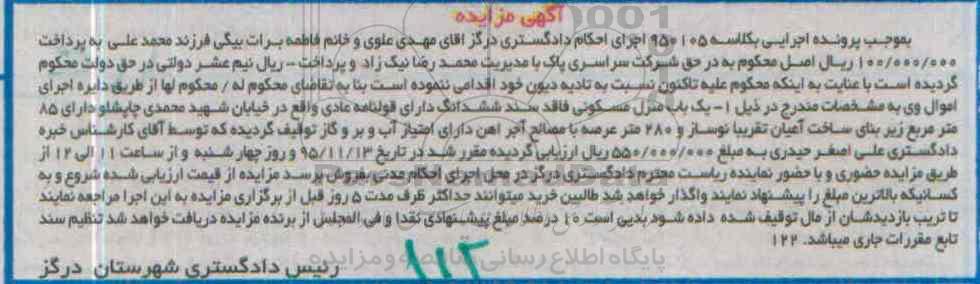 آگهی مزایده
بموجب پرونده اجرایی بکلاسه ۹۵۰۱۰۵ اجرای احکام دادگستری درگز اقای مهدی علوی و خانم فاطمه برات بیگی فرزند محمد علی به پرداخت
۱۰۰/۰۰۰/۰۰۰ ریال اصل محکوم به در حق شرکت سراسری پاک با مدیریت محمد رضا نیک زاد و پرداخت – ریال نیم عشر دولتی در حق دولت محکوم
گردیده است با عنایت به اینکه محکوم علیه تاکنون نسبت به تادیه دیون خود اقدامی ننموده است بنا به تقاضای محکوم له / محکوم لها از طریق دایره اجرای
اموال وی به مشخصات مندرج در ذیل ۱- یک باب منزل مسکونی فاقد سند ششدانگ دارای قولنامه عادی واقع در خیابان شهید محمدی چاپشلو دارای ۸۵
متر مربع زیر بنای ساخت آعیان تقریبا نوساز و ۲۸۰ متر عرصه با مصالح آجر اهن دارای امتیاز آب و بر و گاز توقیف گردیده که توسط آقای کارشناس خبره
دادگستری علی اصغر حیدری به مبلغ ۵۵۰/۰۰۰/۰۰۰ ریال ارزیابی گردیده مقرر شد در تاریخ ۹۵/۱۱/۱۳ و روز چهار شنبه و از ساعت ۱۱ الی ۱۲ از
طریق مزایده حضوری و با حضور نماینده ریاست محترم دادگستری درگز در محل اجرای احکام مدنی بفروش برسد مزایده از قیمت ارزیابی شده شروع و به
کسانیکه بالاترین مبلغ را پیشنهاد نمایند واگذار خواهد شد طالبین خرید میتوانند حداکثر ظرف مدت ۵ روز قبل از برگزاری مزایده به این اجرا مراجعه نمایند
تا تریب بازدیدشان از مال توقیف شده داده شود بدیی است ۱۰ درصد مبلغ پیشنهادی نقدا و فی المجلس از برنده مزایده دریافت خواهد شد تنظیم سند
تابع مقررات جاری میباشد. ۱۲۲
رئیس دادگستری شهرستان درگز
۱۱۲